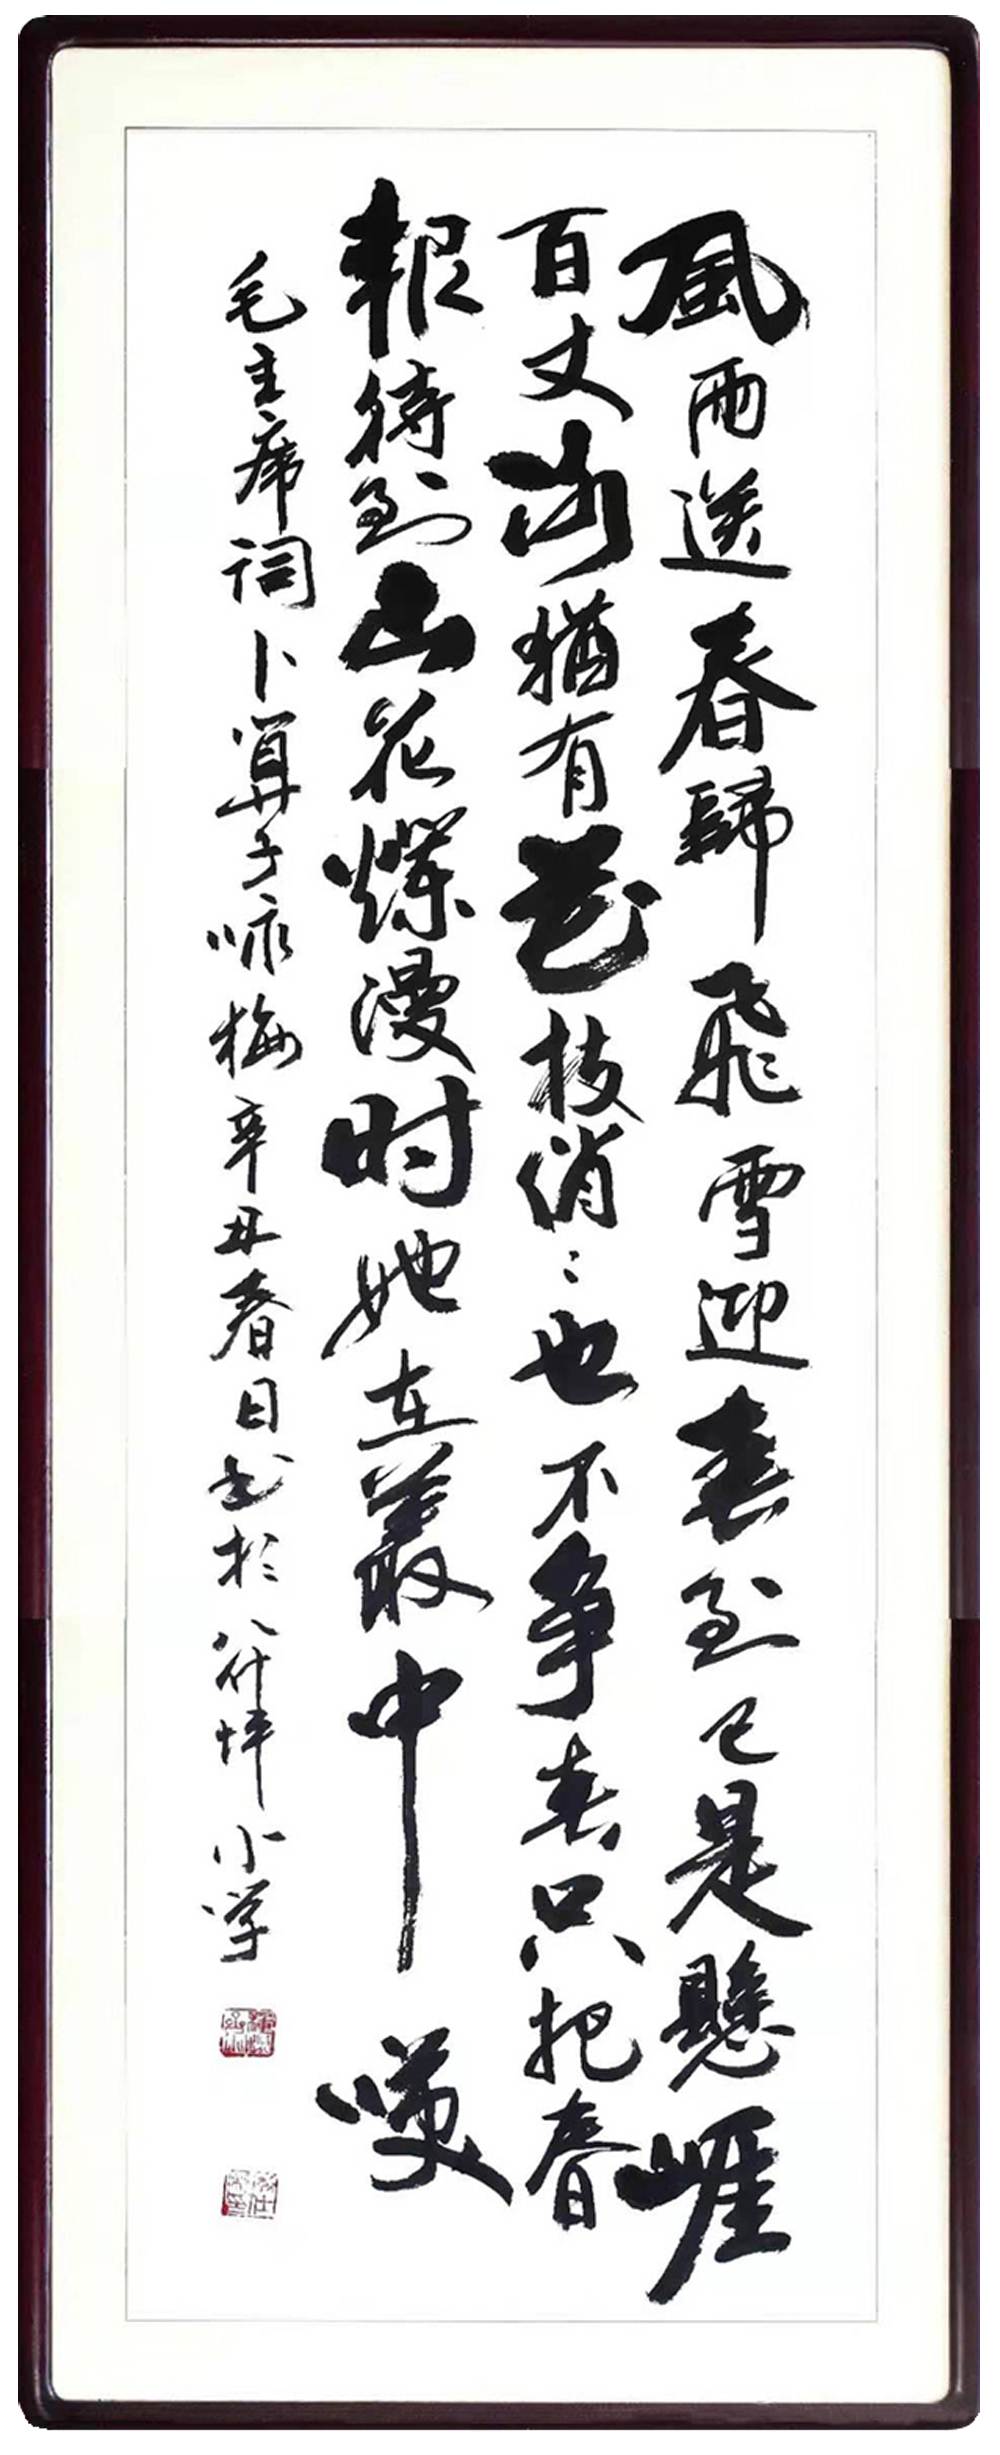 風雨送春歸飛雪迎春到已是懸崖
百丈冰猶有花枝俏〻也不爭春只把春
報待到山花爛漫时她在叢中嘆
毛主席詞卜算子咏梅辛丑春日书於八仟坪小学